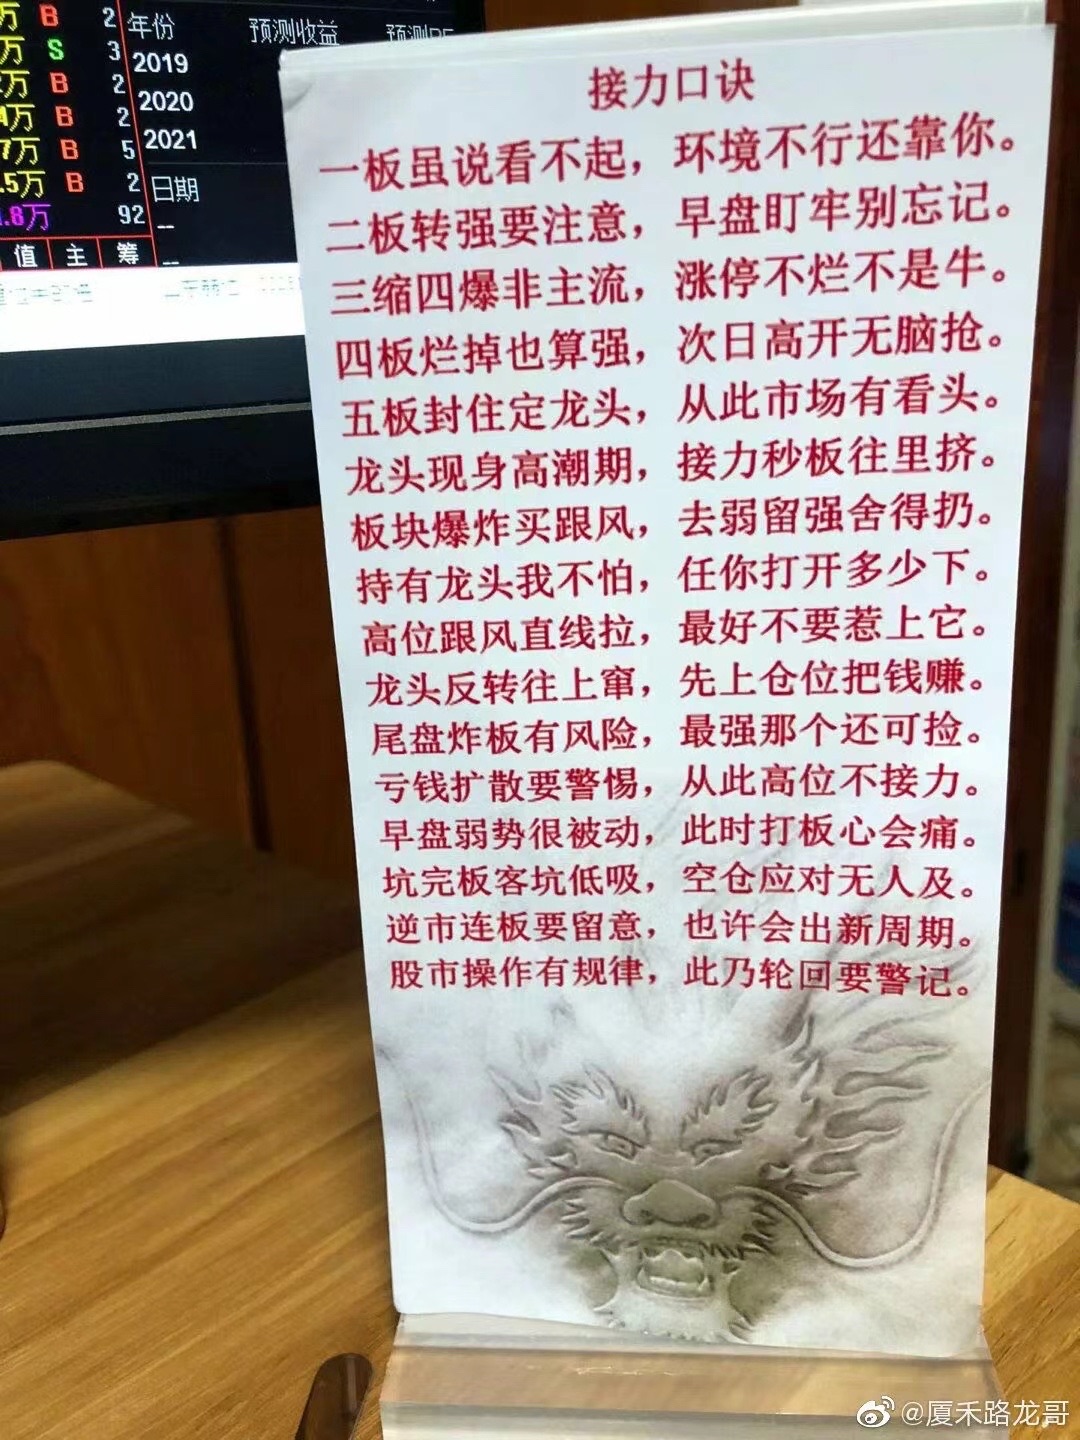 万 B 2
万 S 3
2万 B 2
4万 B 2
7万 B 5
.5万 B 2
.8万 92
值 主 筹
年份 预测收益
2019
2020
2021
日期
--
--
接力口诀
一板虽说看不起，环境不行还靠你。
二板转强要注意，早盘盯牢别忘记。
三缩四爆非主流，涨停不烂不是牛。
四板烂掉也算强，次日高开无脑抢。
五板封住定龙头，从此市场有看头。
龙头现身高潮期，接力秒板往里挤。
板块爆炸买跟风，去弱留强舍得扔。
持有龙头我不怕，任你打开多少下。
高位跟风直线拉，最好不要惹上它。
龙头反转往上窜，先上仓位把钱赚。
尾盘炸板有风险，最强那个还可捡。
亏钱扩散要警惕，从此高位不接力。
早盘弱势很被动，此时打板心会痛。
坑完板客坑低吸，空仓应对无人及。
逆市连板要留意，也许会出新周期。
股市操作有规律，此乃轮回要警记。
@厦禾路龙哥